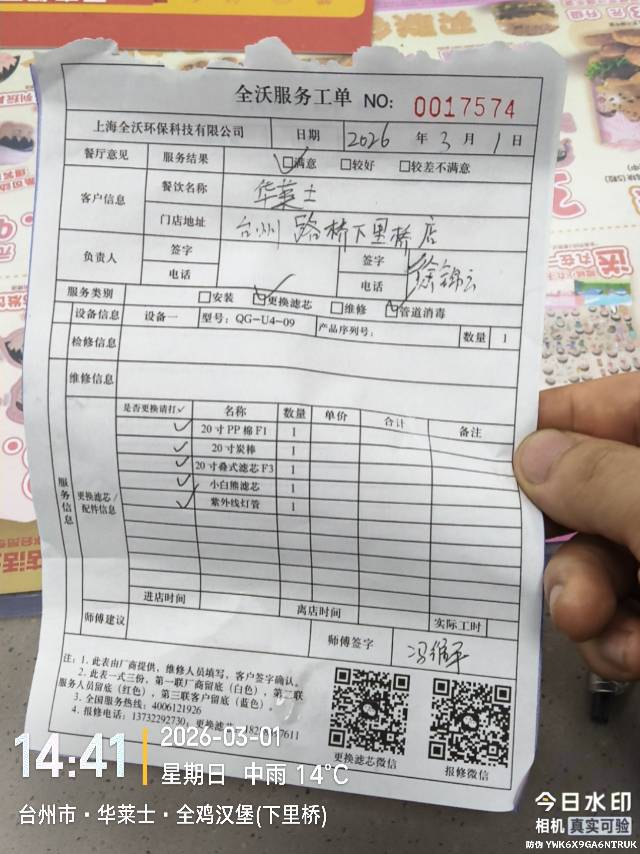 全沃服务工单 NO: 0017574
上海全沃环保科技有限公司 日期 2026 年 3 月 1 日
餐厅意见 服务结果 ☑满意 □较好 □较差不满意
客户信息 餐饮名称 华莱士
门店地址 台州 路桥下里桥店
负责人 签字 签字 徐锦云
电话 电话
服务类别 □安装 ☑更换滤芯 □维修 ☑管道消毒
设备信息 设备一 型号: QG-U4-09 产品序列号: 数量 1
检修信息
维修信息
服务信息
更换滤芯/配件信息
是否更换请打✓ 名称 数量 单价 合计 备注
✓ 20寸PP棉F1 1
✓ 20寸炭棒 1
✓ 20寸叠式滤芯F3 1
✓ 小白熊滤芯 1
✓ 紫外线灯管 1
进店时间 离店时间 实际工时
师傅建议 师傅签字 冯维平
注: 1. 此表由厂商提供, 维修人员填写, 客户签字确认。
2. 此表一式三份, 第一联厂商留底(白色), 第二联
服务人员留底(红色), 第三联客户留底(蓝色)。
3. 全国服务热线: 4006121926
4. 报修电话: 13732292730; 更换滤芯
7611
更换滤芯微信 报修微信
14:41 2026-03-01
星期日 中雨 14℃
台州市·华莱士·全鸡汉堡(下里桥)
今日水印
相机 真实可验
防伪 YWK6X9GA6NTRUK